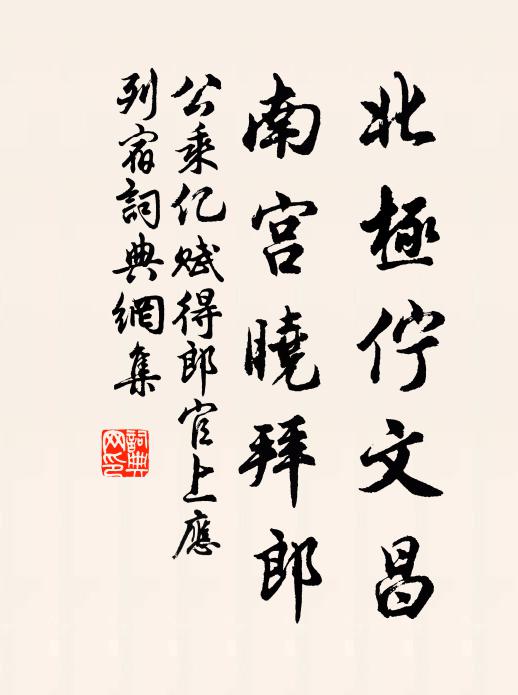 北極佇文昌
南宮曉拜郎
公乘亿賦得郎官上應
列宿詞典網集
詞典
网印